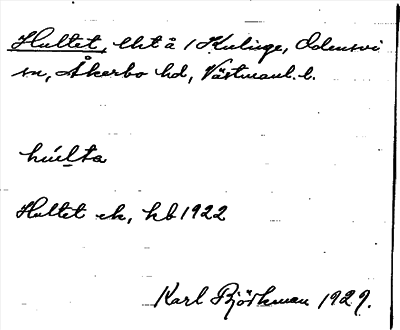 Hultet, lht å 1 Kulinge, Odensvi
sn, Åkerbo hd, Västmanl. l.
húlta
Hultet ek, kb 1922
Karl Björkman 1929.